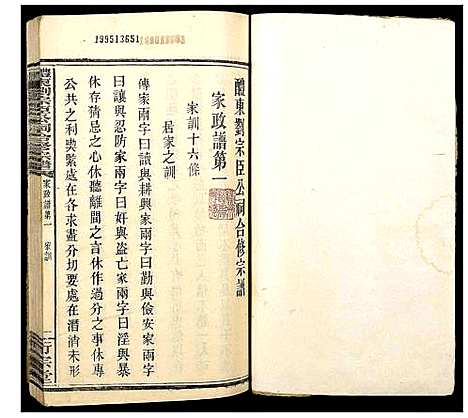 199513651
醴東劉宗臣公祠合修宗譜
家政譜第一
家訓十六條
居家之訓
傳家兩字曰讀與耕興家兩字曰勤與儉安家兩字
曰讓與忍防家兩字曰奸與盗亡家兩字曰淫與暴
休存猜忌之心休聽離間之言休作過分之事休專
公共之利喫緊處在各求盡分切要處在潛消未形
家政譜第一
家訓